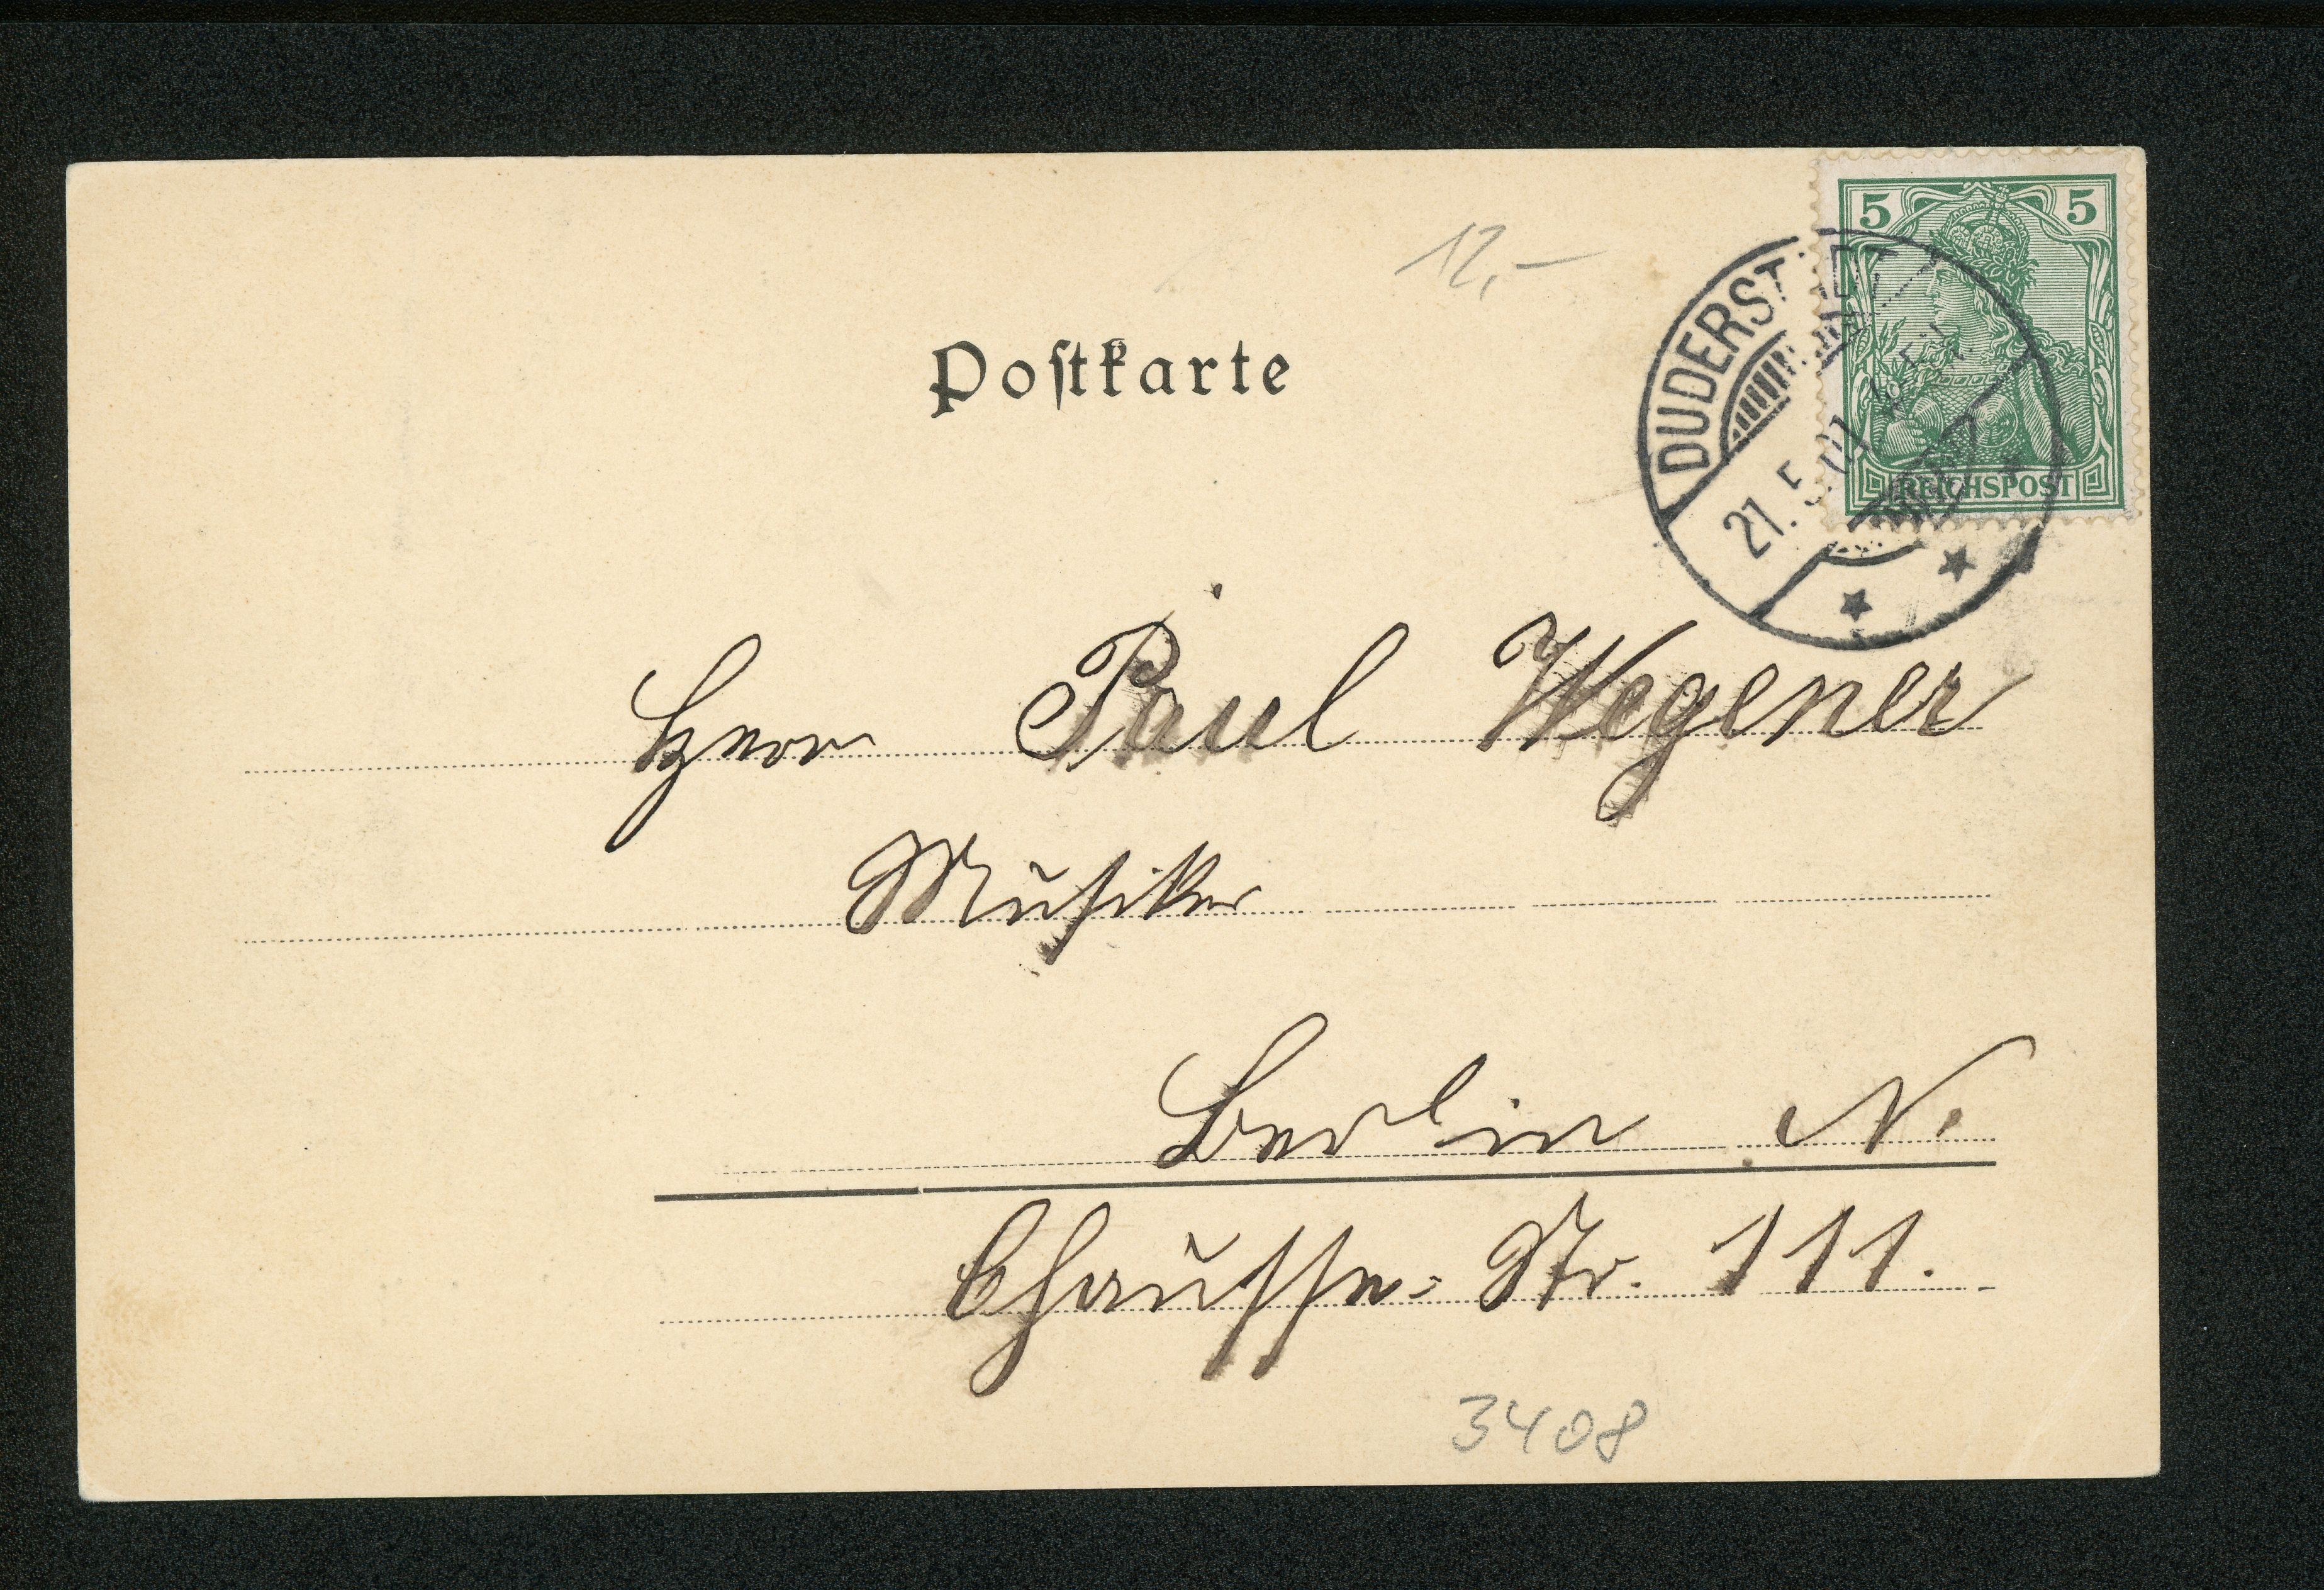 12,-
5 5
REICHSPOST
DUDERSTADT
21.5.01
Poſtkarte
Herr Paul Wegener
Muſiker
Berlin N.
Chauſſee-Str. 111.
3408